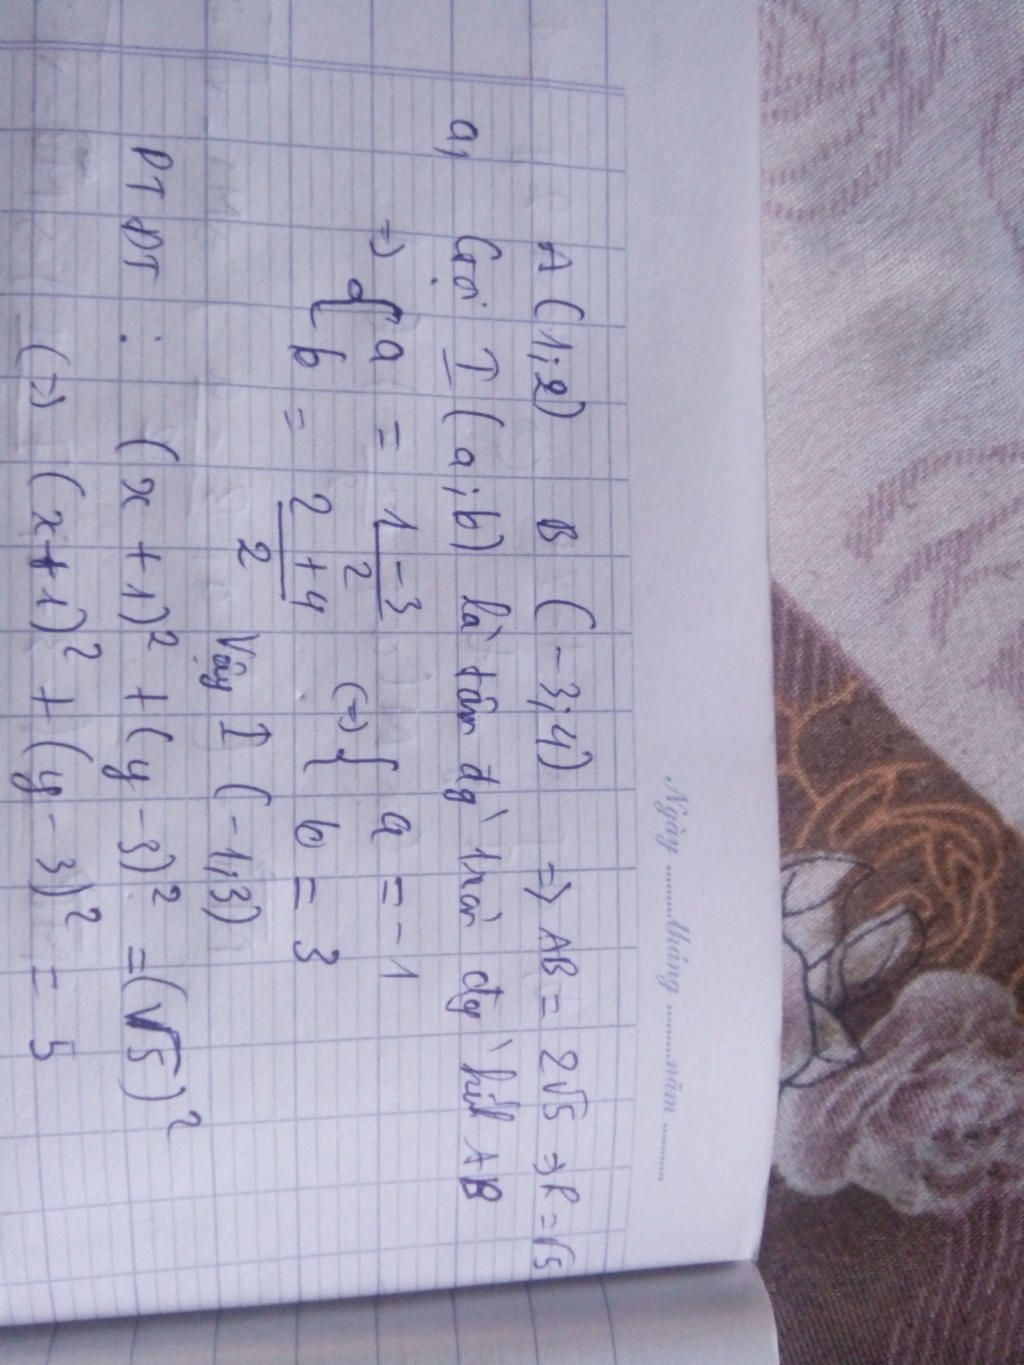 Ngày ........tháng ........năm ........
A (1; 2) B (-3; 4) => AB = 2√5 => R = √5
a, Gọi I (a; b) là tâm đg` tròn đg` kính AB
=> { a = (1 - 3)/2 (=) { a = -1
b = (2 + 4)/2 b = 3
Vậy I (-1; 3)
PT ĐT : (x + 1)² + (y - 3)² = (√5)²
(=) (x + 1)² + (y - 3)² = 5